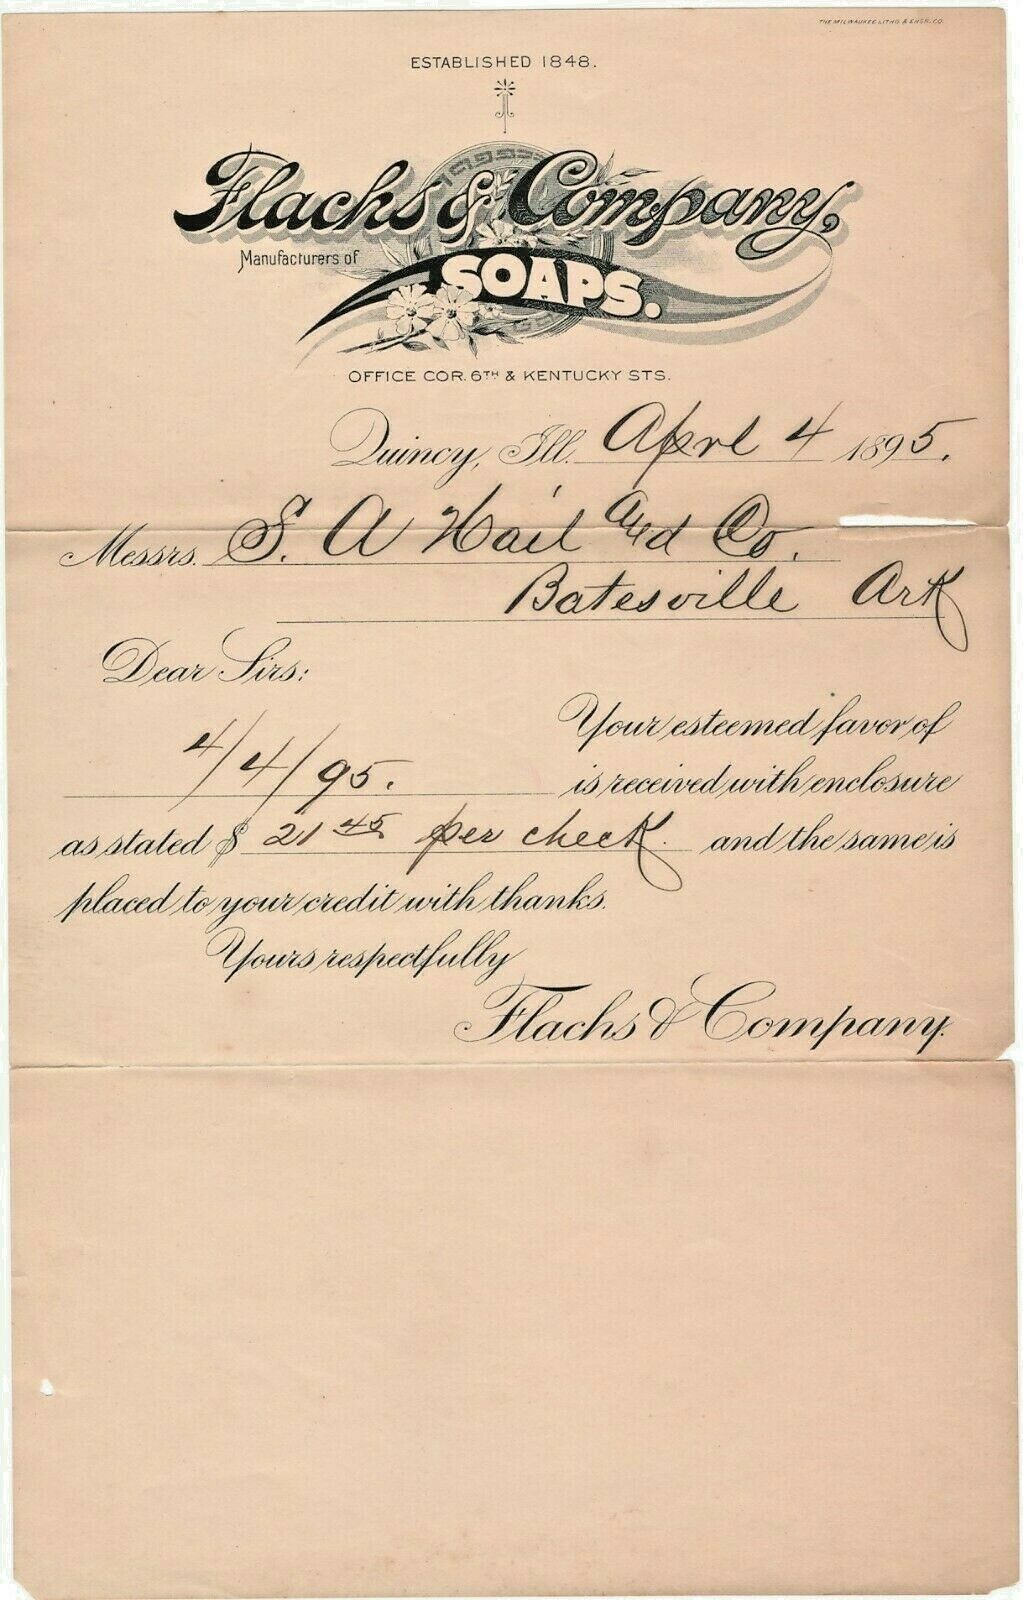 THE MILWAUKEE LITHO. & ENGR. CO.
ESTABLISHED 1848.
Flachs & Company,
Manufacturers of
SOAPS.
OFFICE COR. 6TH & KENTUCKY STS.
Quincy, Ill. Aprl 4 1895.
Messrs. S. A Hail and Co.
Batesville Ark
Dear Sirs:
Your esteemed favor of
4/4/95. is received with enclosure
as stated $ 21 45 per check. and the same is
placed to your credit with thanks.
Yours respectfully
Flachs & Company.